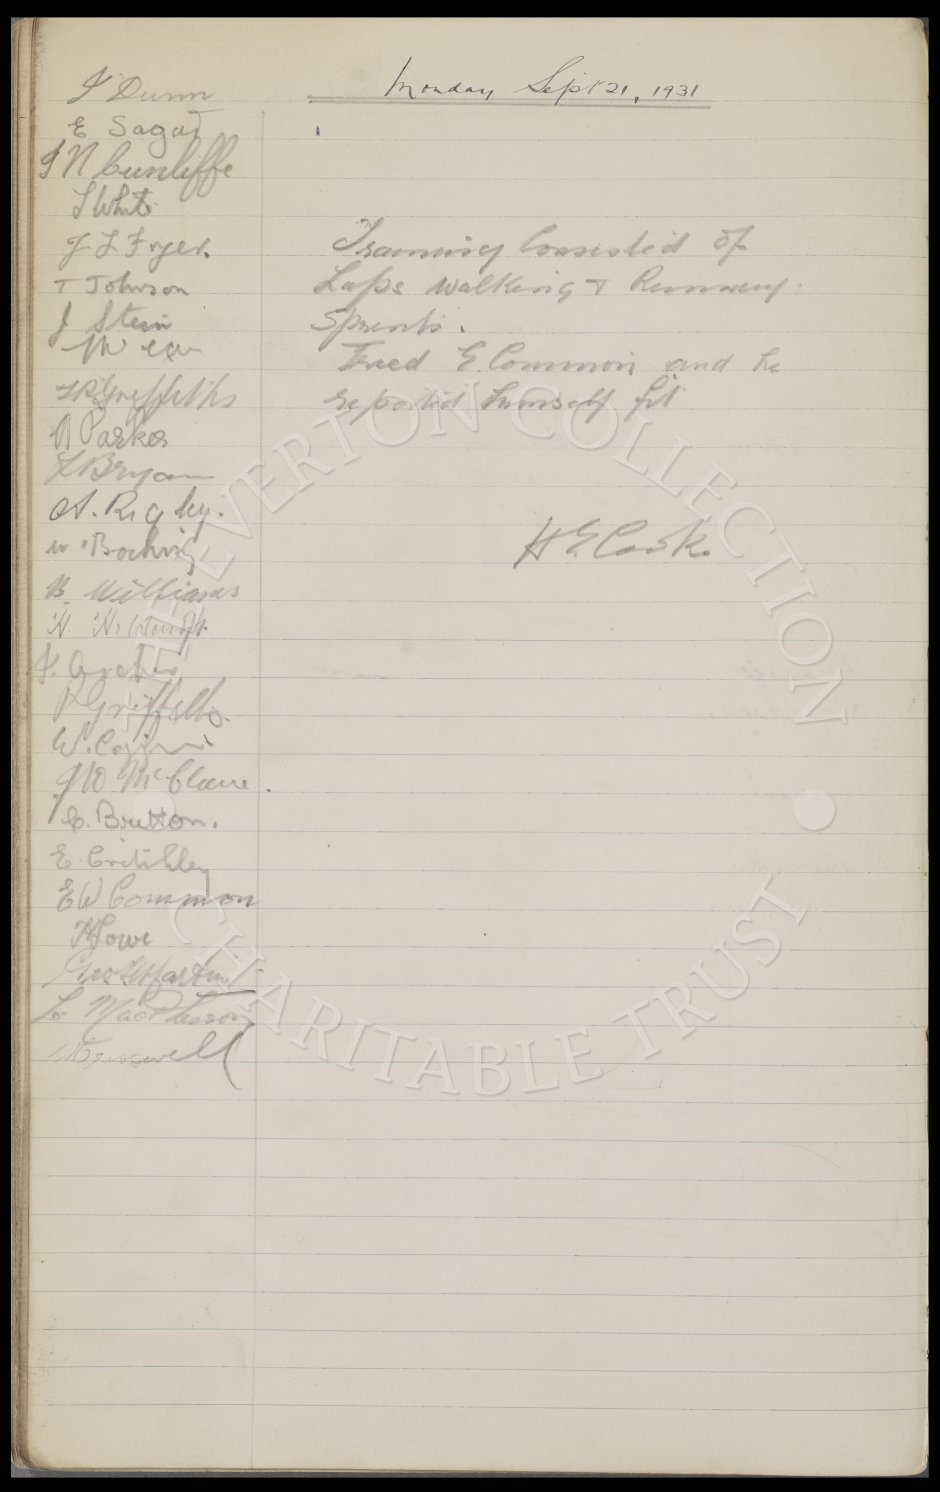 Monday Sept 21, 1931
J Dunn
E Sagar
J N Cunliffe
T White
J L Fryer.
T Johnson
J Stein
T P Griffiths
A Parker
L Bryan
A. Rigby.
W Bocking
B. Williams
H. Holdcroft.
J. Archer
P Griffiths.
W. Coggins
J W McClure.
C. Britton.
E Critchley
E W Common
H Lowe
Geo S Martin
L. MacPherson
Training Consisted of
Laps walking & Running.
Sprints.
Tried E. Common and he
reported himself fit
H E Cooke
THE EVERTON COLLECTION
CHARITABLE TRUST